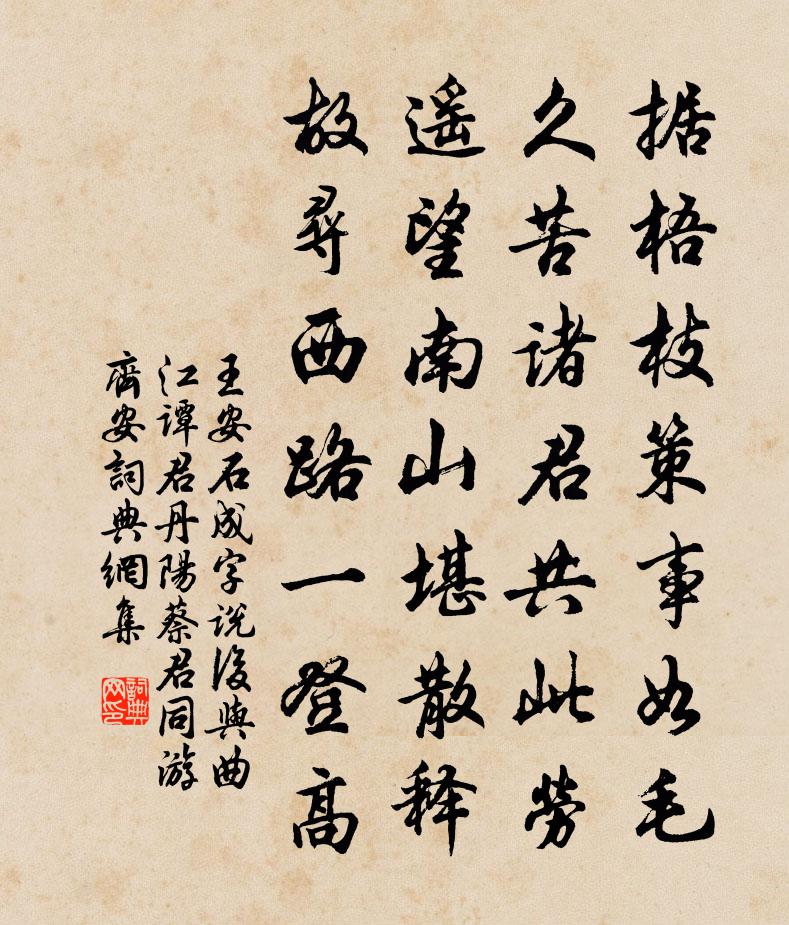 据梧枝策事如毛
久苦诸君共此勞
遥望南山堪散释
故尋西路一登高
王安石成字说後與曲
江谭君丹陽蔡君同游
齊安詞典網集
詞典
网印